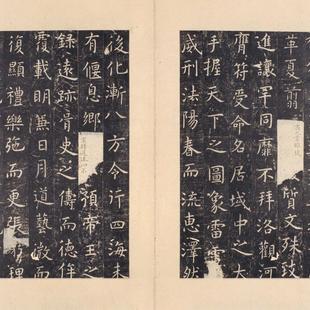 革夏翦 質文殊致
進讓罕同靡不拜洛觀河
膺符受命名居域中之大
手握天下之圖象雷
威刑法陽春而流惠澤然
後化漸八方令行四海未
有偃息鄉 預帝王之
錄遠跡胥史之儔而德侔
覆載明兼日月道藝微而
復顯禮樂弛而更張 理